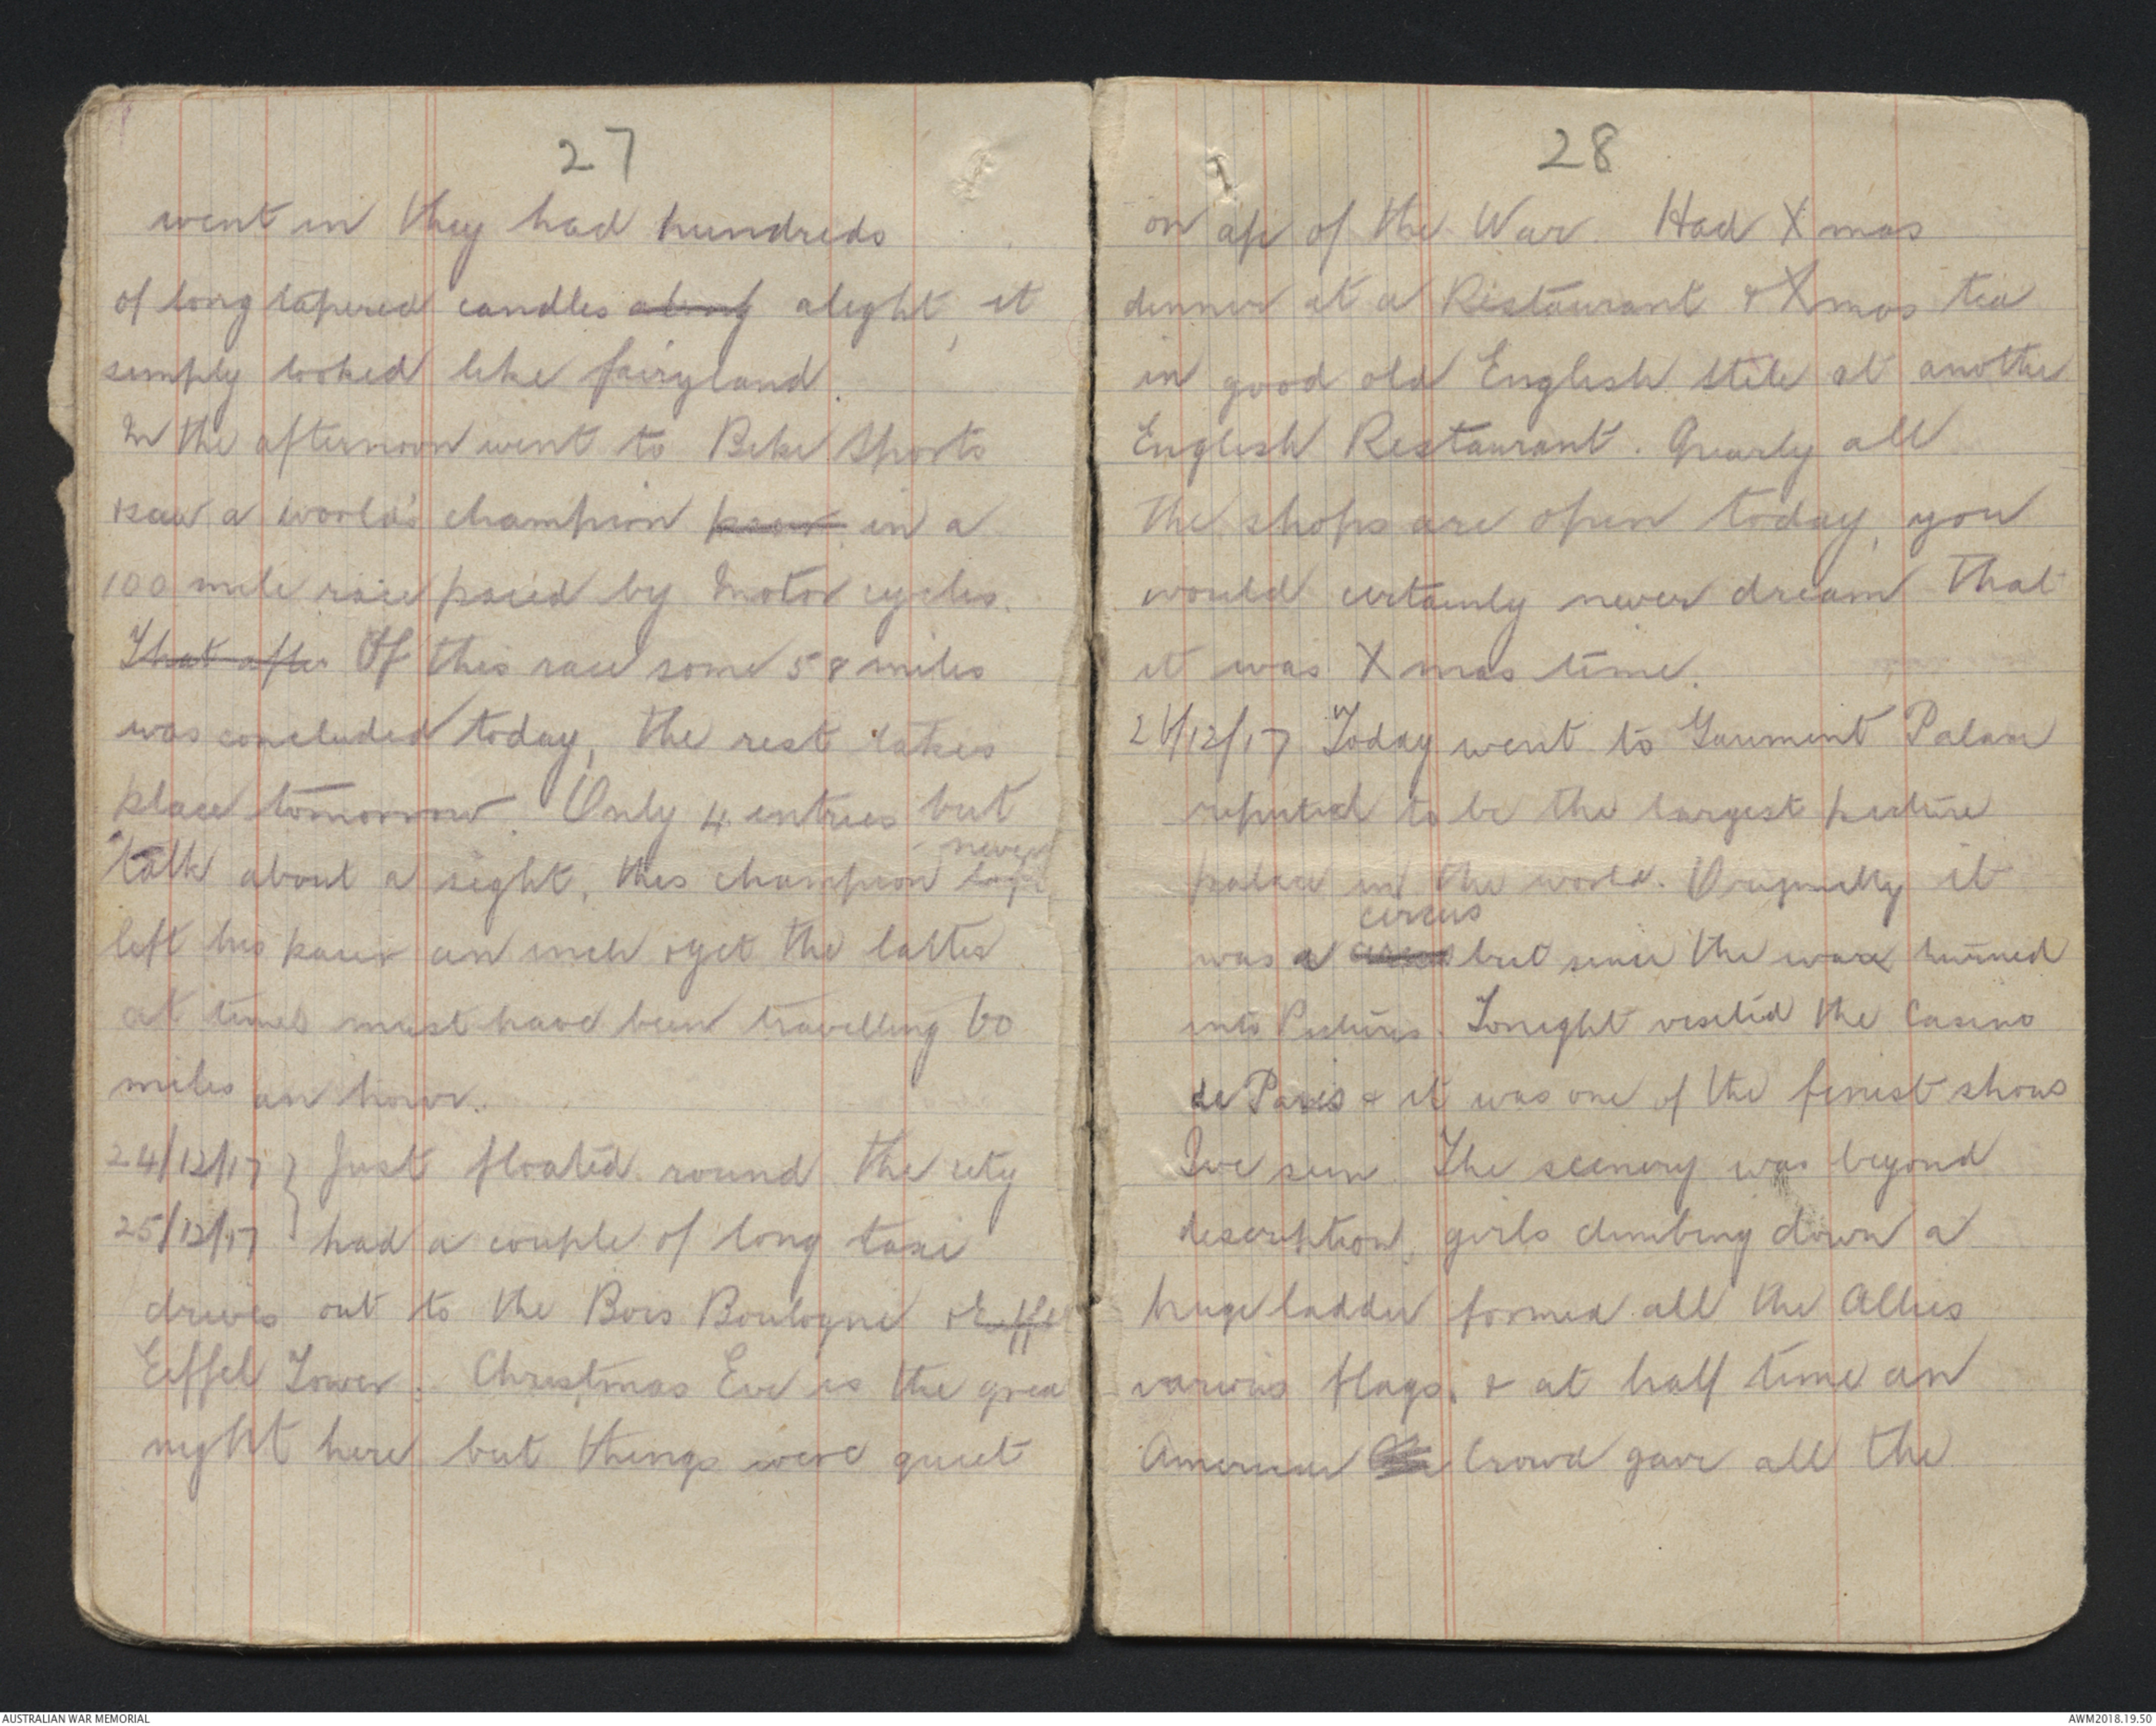 27
went in they had hundreds
of long tapered candles along alight, it
simply looked like fairyland.
In the afternoon went to Bike Sports
& saw a world's champion pacer in a
100 mile race paced by motor cycles.
That after Of this race some 58 miles
was concluded today, the rest takes
place tomorrow. Only 4 entries but
never
talk about a sight, this champion
left his pacer an inch & yet the latter
at times must have been travelling 60
miles an hour.
24/12/17 } Just floated round the city
25/12/17 } had a couple of long taxi
drives out to the Bois Boulogne & Eiffe
Eiffel Tower. Christmas Eve is the grea
night here but things were quiet
28
on a/c of the War. Had Xmas
dinner at a Restaurant & Xmas tea
in good old English stile at another
English Restaurant. Nearly all
the shops are open today, you
would certainly never dream that
it was Xmas time.
26/12/17 Today went to Gaumont Palace
reputed to be the largest picture
palace in the world. Originally it
circus
was a but since the war turned
into Pictures. Tonight visited the Casino
de Paris & it was one of the finest shows
I've seen. The scenery was beyond
description, girls climbing down a
huge ladder formed all the Allies
various flags, & at half time an
American Crowd gave all the
AUSTRALIAN WAR MEMORIAL
AWM2018.19.50